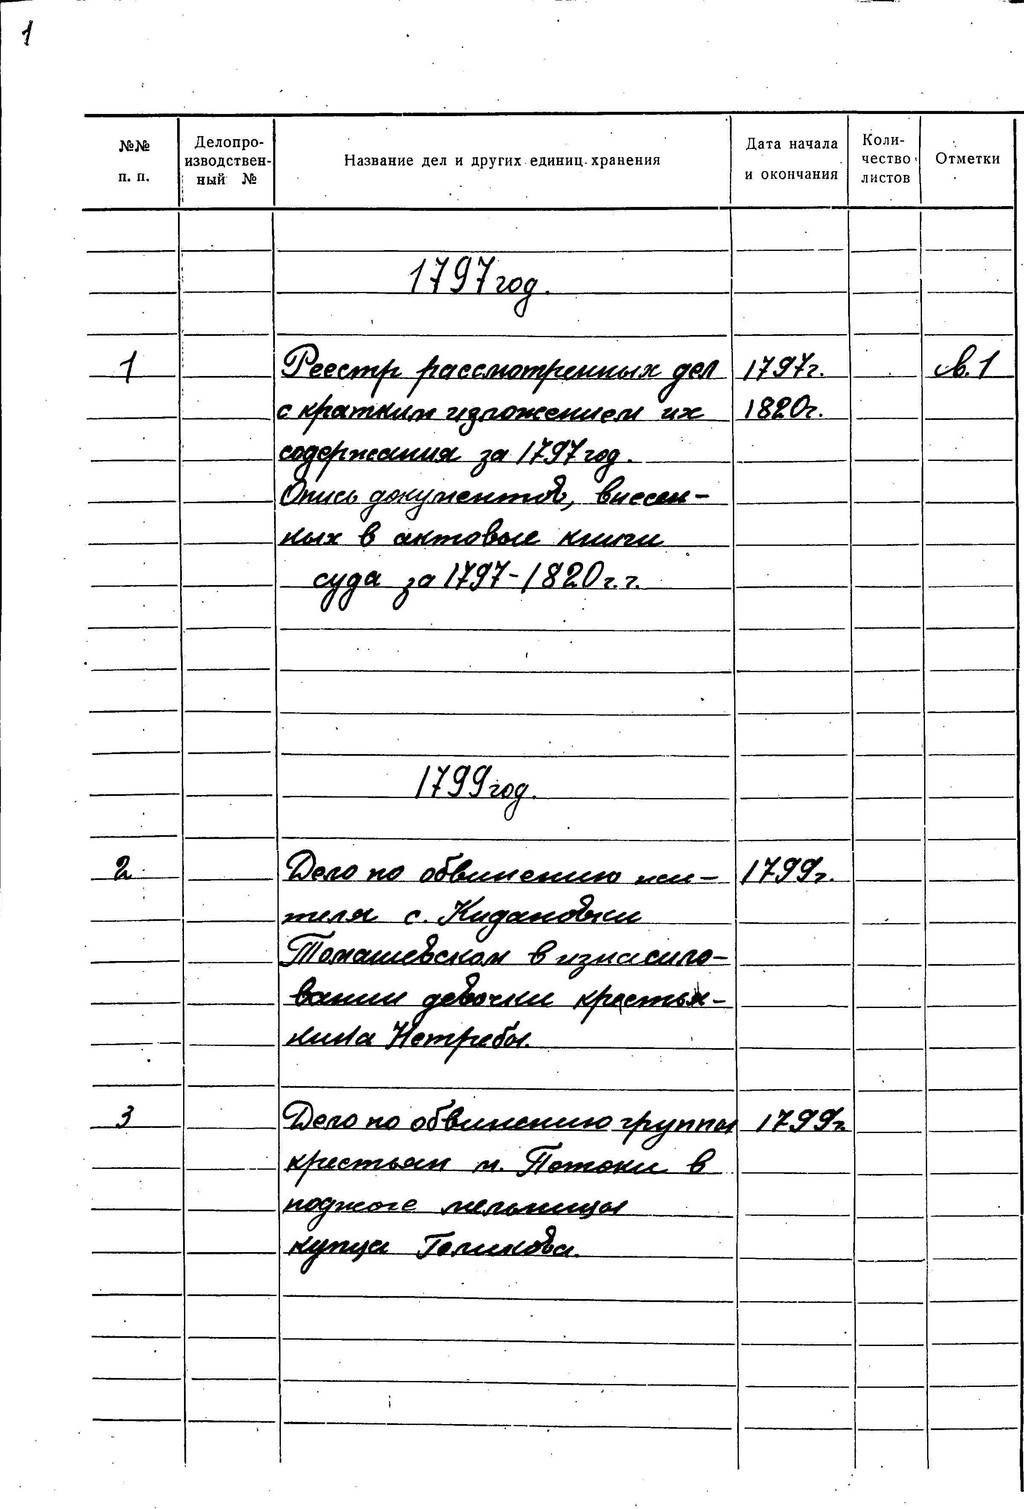 1
№№ п. п. Делопро-изводствен-ный № Название дел и других единиц хранения Дата начала и окончания Коли-чество листов Отметки
1797 год.
1 Реестр рассмотренных дел 1797г. св.1
с кратким изложением их 1820г.
содержания за 1797 год.
Опись документов, внесен-
ных в актовые книги
суда за 1797-1820 г.г.
1799 год.
2 Дело по обвинению жи- 1799г.
теля с. Кидановки
Томашевском в изнасило-
вании девочки крестья-
нина Нетребы.
3 Дело по обвинению группы 1799г.
крестьян м. Потоки в
поджоге мельницы
купца Голикова.